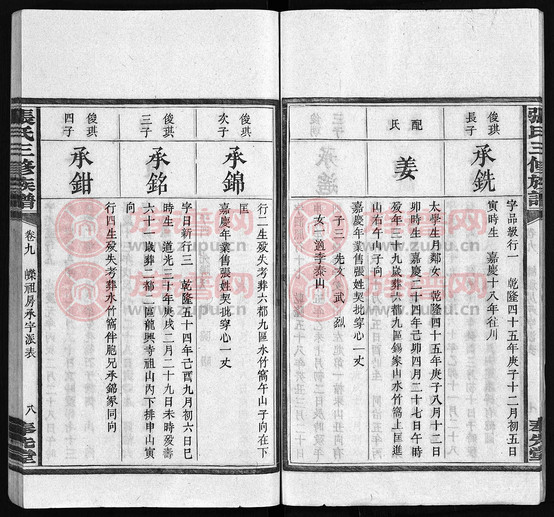 張氏三修族譜
俊琪
長子
承銑
字品級行一 乾隆四十五年庚子十二月初五日
寅時生 嘉慶十八年谷川
配
氏
姜
太學生月鄰女 乾隆四十五年庚子八月十二日
卯時生 嘉慶二十四年己卯四月二十七日午時
歿年三十九歲葬六都九區錫家山水竹窩上匡進
山右午山子向
子三 先文 武 烈
女一適李泰山
嘉慶年業售張姓契批穿心一丈
俊琪
次子
承錦
行二生歿失考葬六都九區水竹窩午山子向在下
匡
嘉慶年業售張姓契批穿心一丈
俊琪
三子
承銘
字日新行三 乾隆五十四年己酉九月初六日巳
時生 道光三十年庚戌二月二十九日未時歿壽
六十二歲葬二都二區龍興寺祖山內下排申山寅
向
俊琪
四子
承鉗
行四生歿失考葬水竹窩伴胞兄承錦冢同向
張氏三修族譜
卷九
燦祖房承字派表
八
奉先堂
族譜网
www.zupu.cn